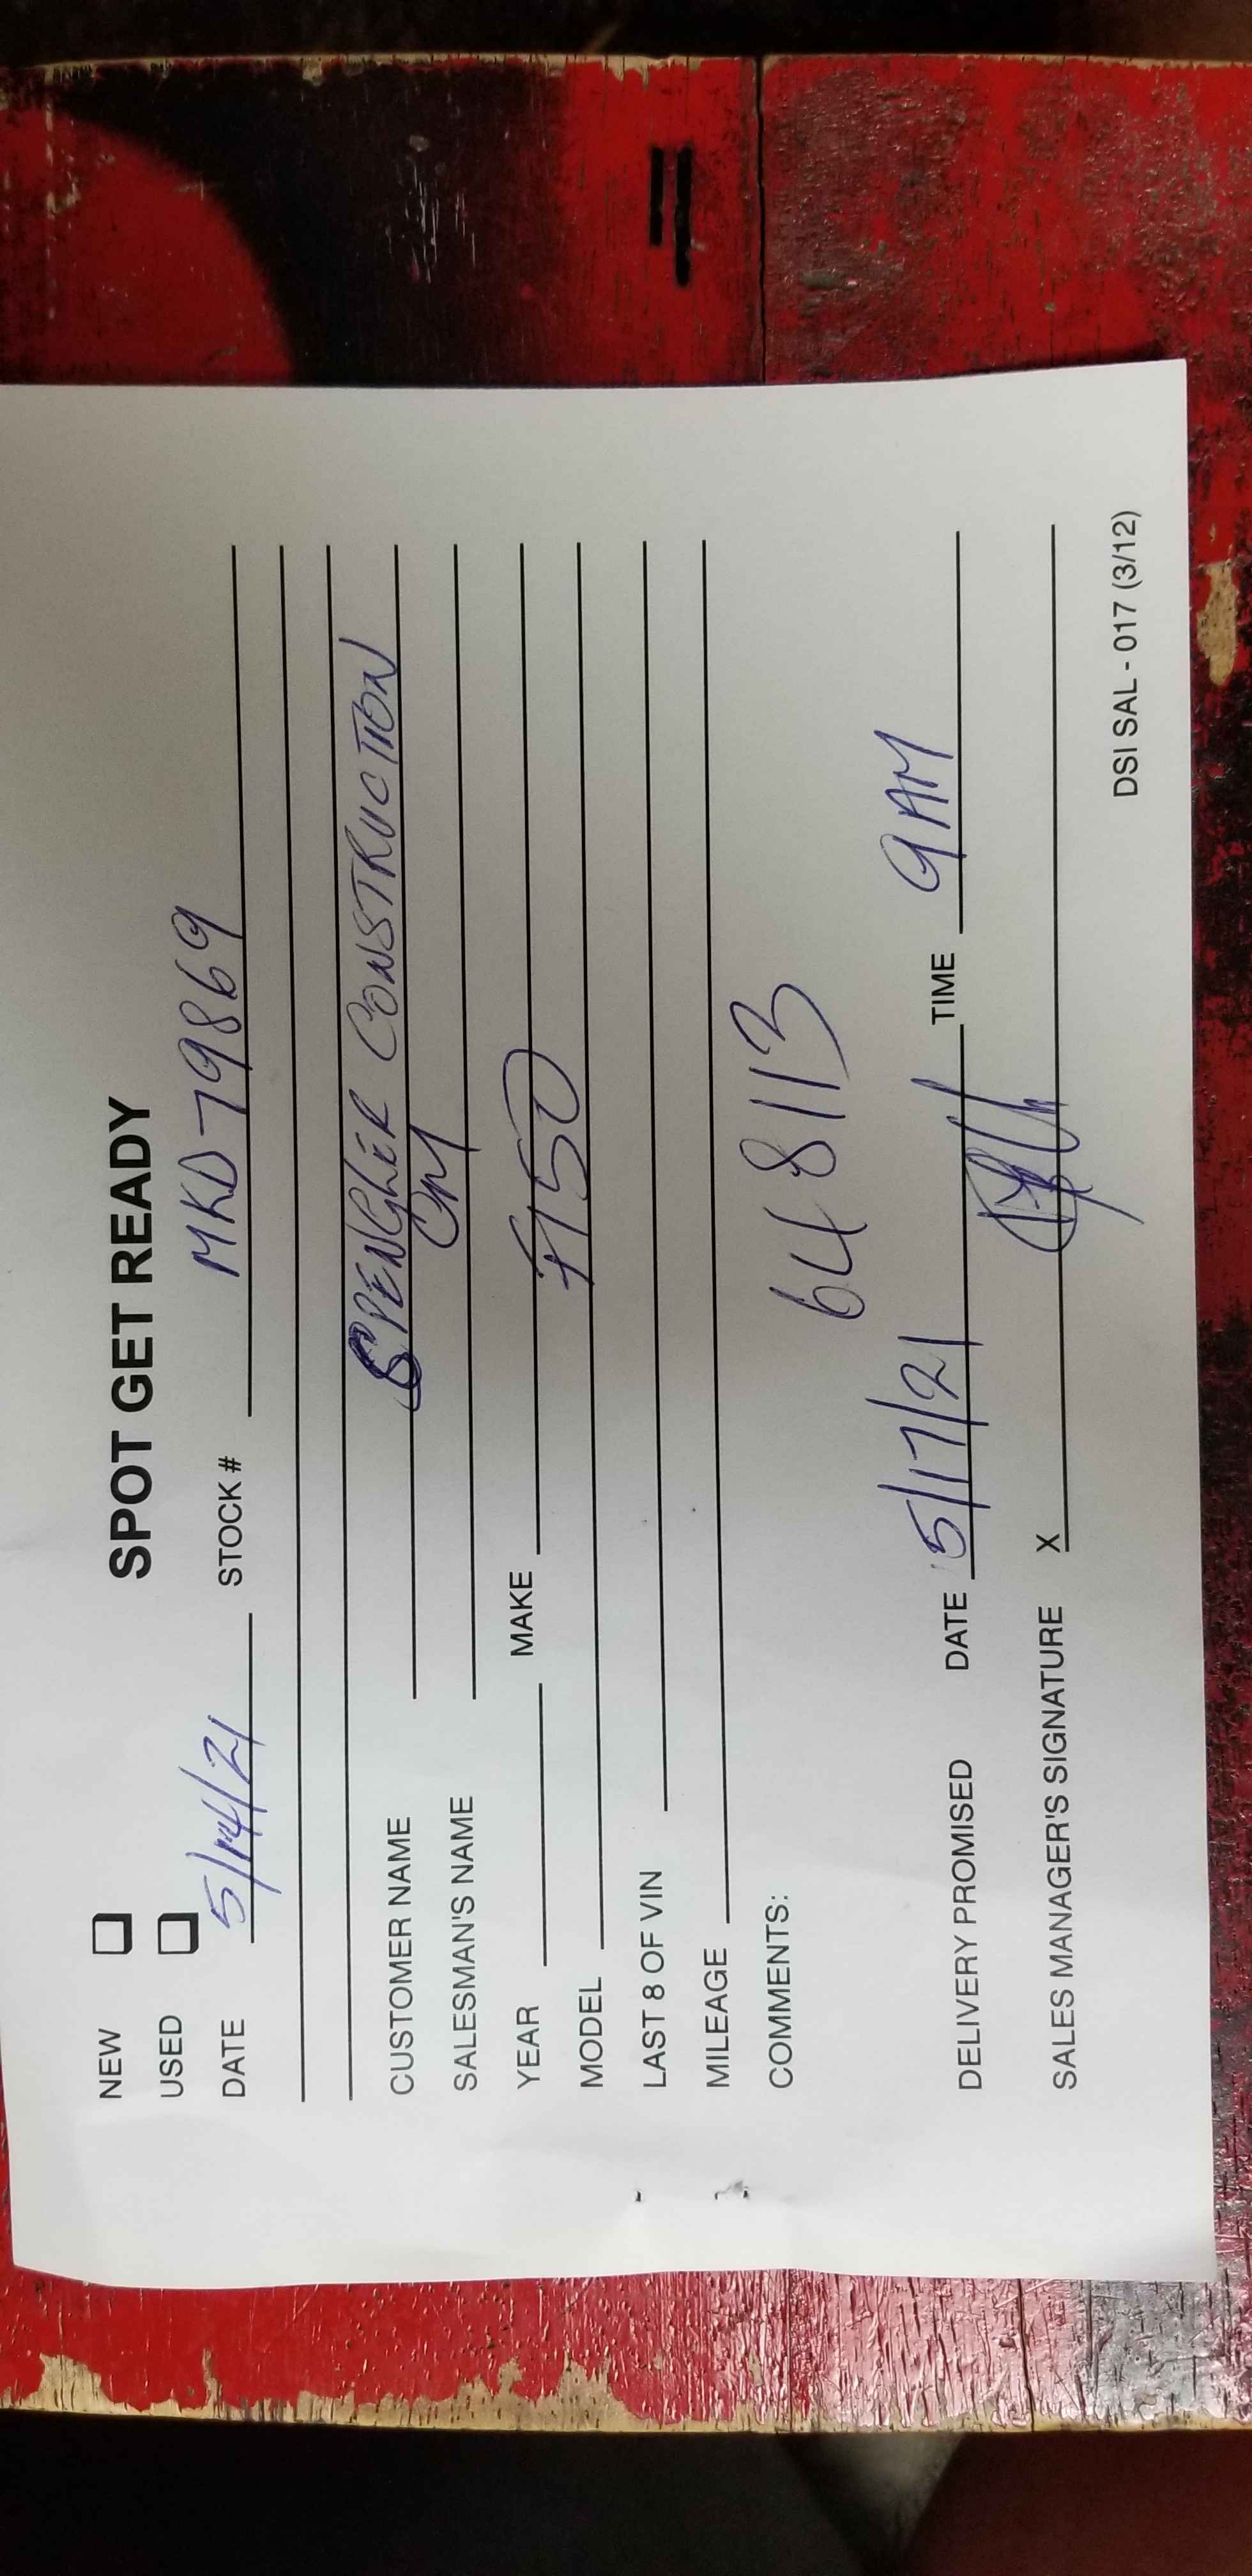 NEW
SPOT GET READY
USED
DATE 5/14/21 STOCK # MKD79869
CUSTOMER NAME SPENGLER CONSTRUCTION
SALESMAN'S NAME CM
YEAR MAKE
MODEL F150
LAST 8 OF VIN
MILEAGE
COMMENTS:
648113
DELIVERY PROMISED DATE 5/17/21 TIME 9 AM
SALES MANAGER'S SIGNATURE X
DSI SAL - 017 (3/12)